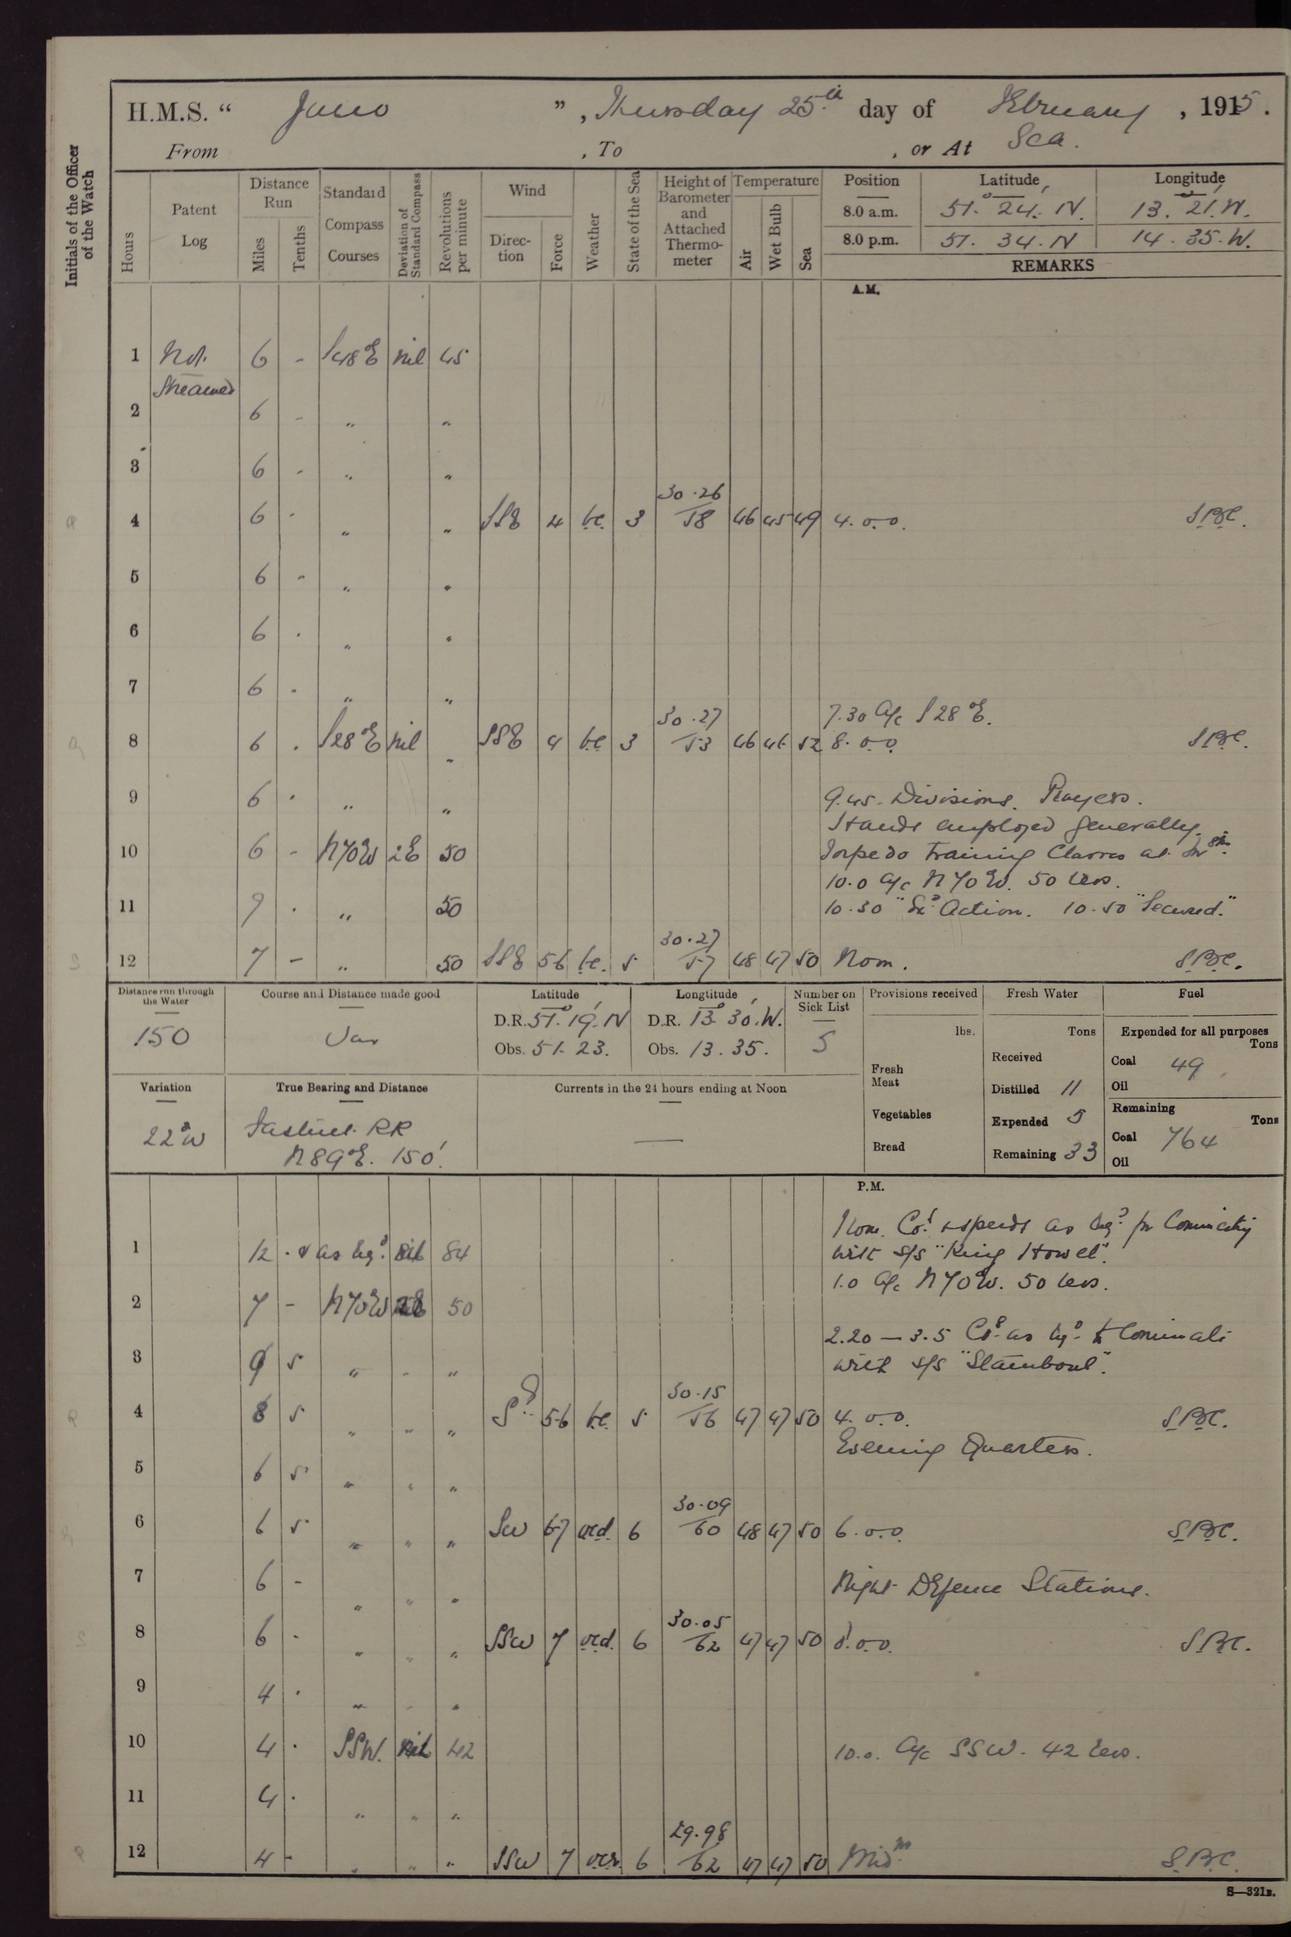 H.M.S. “ Juno ” , Thursday 25th day of February , 1915 .
From , To , or At Sea.
Initials of the Officer of the Watch
Hours
Patent Log
Distance Run
Miles
Tenths
Standard Compass Courses
Deviation of Standard Compass
Revolutions per minute
Wind
Direction
Force
Weather
State of the Sea
Height of Barometer and Attached Thermometer
Temperature
Air
Wet Bulb
Sea
Position Latitude Longitude
8.0 a.m. 51. 24. N. 13. 21. W.
8.0 p.m. 51. 34. N 14. 35. W.
REMARKS
A.M.
1 Not 6 - S48°E nil 45
Streamed
2 6 - „ „
3 6 - „ „
30.26
4 6 . „ „ SSE 4 bc. 3 58 46 45 49 4.0.0. SBC.
5 6 - „ „
6 6 . „ „
7 6 - „ „
7.30 A/c S28°E.
30.27
8 6 . S28°E nil „ SSE 4 bc 3 53 46 46 52 8.0.0 SBC.
9 6 . „ „ 9.45. Divisions. Prayers.
Hands employed generally.
10 6 - N70W 2E 50 Torpedo Training Classes at
10.0 A/c N70W. 50 revs.
11 7 . „ 50 10.30 Action. 10.50 "Secured."
30.27
12 7 - „ 50 SSE 5-6 bc. 5 57 48 47 50 Noon. SBC.
Distance run through the Water
150
Course and Distance made good
Var
Latitude
D.R. 51°. 19'. N
Obs. 51. 23.
Longtitude
D.R. 13°. 30'. W.
Obs. 13. 35.
Number on Sick List
5
Provisions received
lbs.
Fresh Meat
Vegetables
Bread
Fresh Water
Tons
Received
Distilled 11
Expended 5
Remaining 33
Fuel
Expended for all purposes
Tons
Coal 49
Oil
Remaining
Tons
Coal 764
Oil
Variation
22°W
True Bearing and Distance
Fastnet RR
N89°E. 150'.
Currents in the 24 hours ending at Noon
—
P.M.
Noon. Cos. & speeds as req. for Communicatg
1 12 . as req. nil 84 with s/s "King Howel".
1.0 A/c N70W. 50 revs.
2 7 - N70W 2E 50
2.20 — 3.5 Cos. as req. to Communicate
3 9 5 „ - „ with s/s "Stamboul".
30.15
4 8 5 „ „ „ 5-6 bc. 5 56 47 47 50 4.0.0. SBC.
Evening Quarters.
5 6 5 „ „ „
30.09
6 6 5 „ „ „ SW 6-7 ocd. 6 60 48 47 50 6.0.0. SBC.
7 6 - „ „ „ Night Defence Stations.
30.05
8 6 - „ „ „ SSW 7 ocd. 6 62 47 47 50 8.0.0. SBC.
9 4 . „ - „
10 4 . SSW. nil 42 10.0. A/c SSW. 42 revs.
11 4 . „ „ „
29.98
12 4 - „ „ „ SSW 7 ocr. 6 62 47 47 50 Midt. SBC.
S—321B.